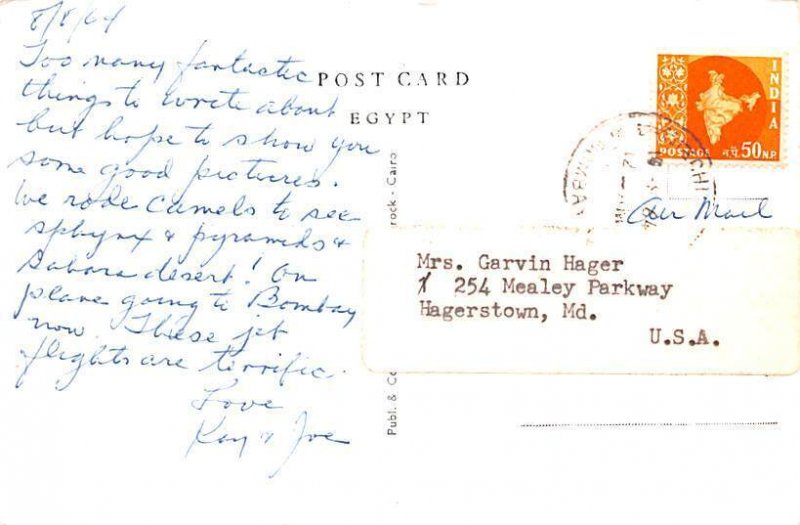 8/8/64
Too many fantastic
things to write about
but hope to show you
some good pictures.
We rode Camels to see
sphynx & pyramids &
Sahara desert! On
plane going to Bombay
now. These jet
flights are terrific.
Love
Kay & Joe
POST CARD
EGYPT
Publ. & Co
rock - Cairo
INDIA
POSTAGE न.पै. 50 N.P.
BOMBAY
Air Mail
Mrs. Garvin Hager
254 Mealey Parkway
Hagerstown, Md.
U.S.A.